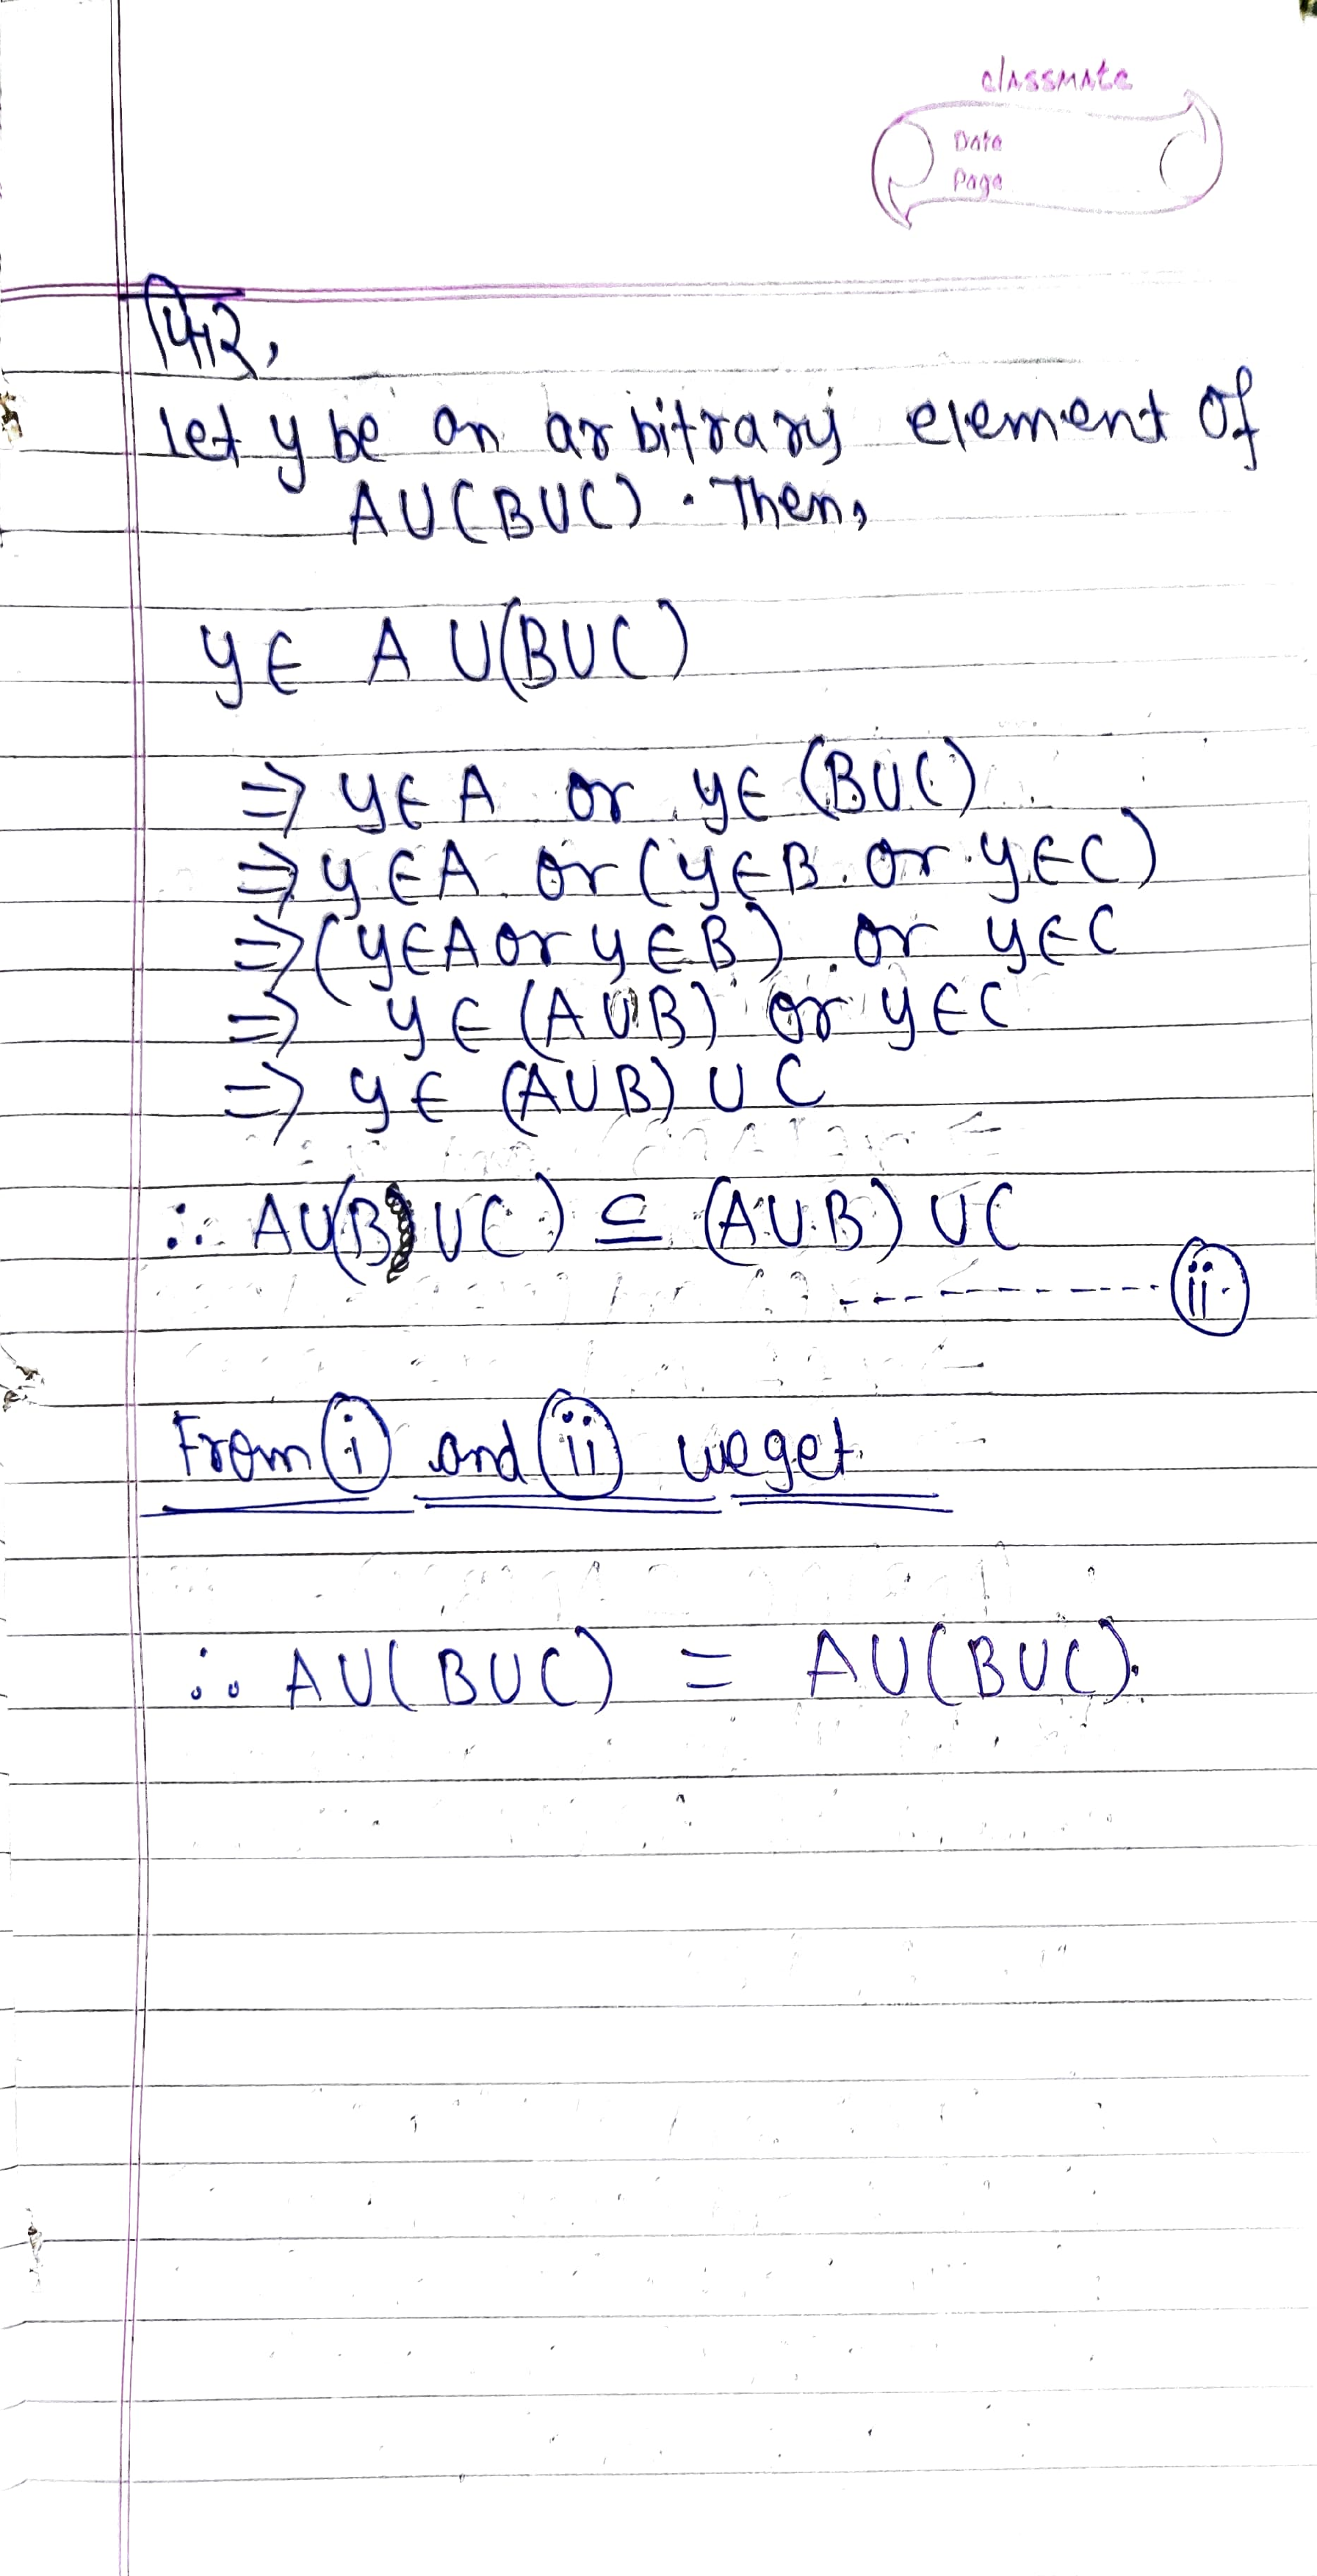 classmate
Date
Page
फिर,
Let y be an arbitrary element of
AU(BUC). Then,
y∈ A U(BUC)
⇒ y∈ A or y∈ (BUC)
⇒ y∈A or (y∈B or y∈C)
⇒ (y∈A or y∈B) or y∈C
⇒ y∈ (AUB) or y∈C
⇒ y∈ (AUB) U C
∴ AU(B UC) ⊆ (AUB) UC
------------ (ii)
From (i) and (ii) we get
∴ AU(BUC) = AU(BUC).